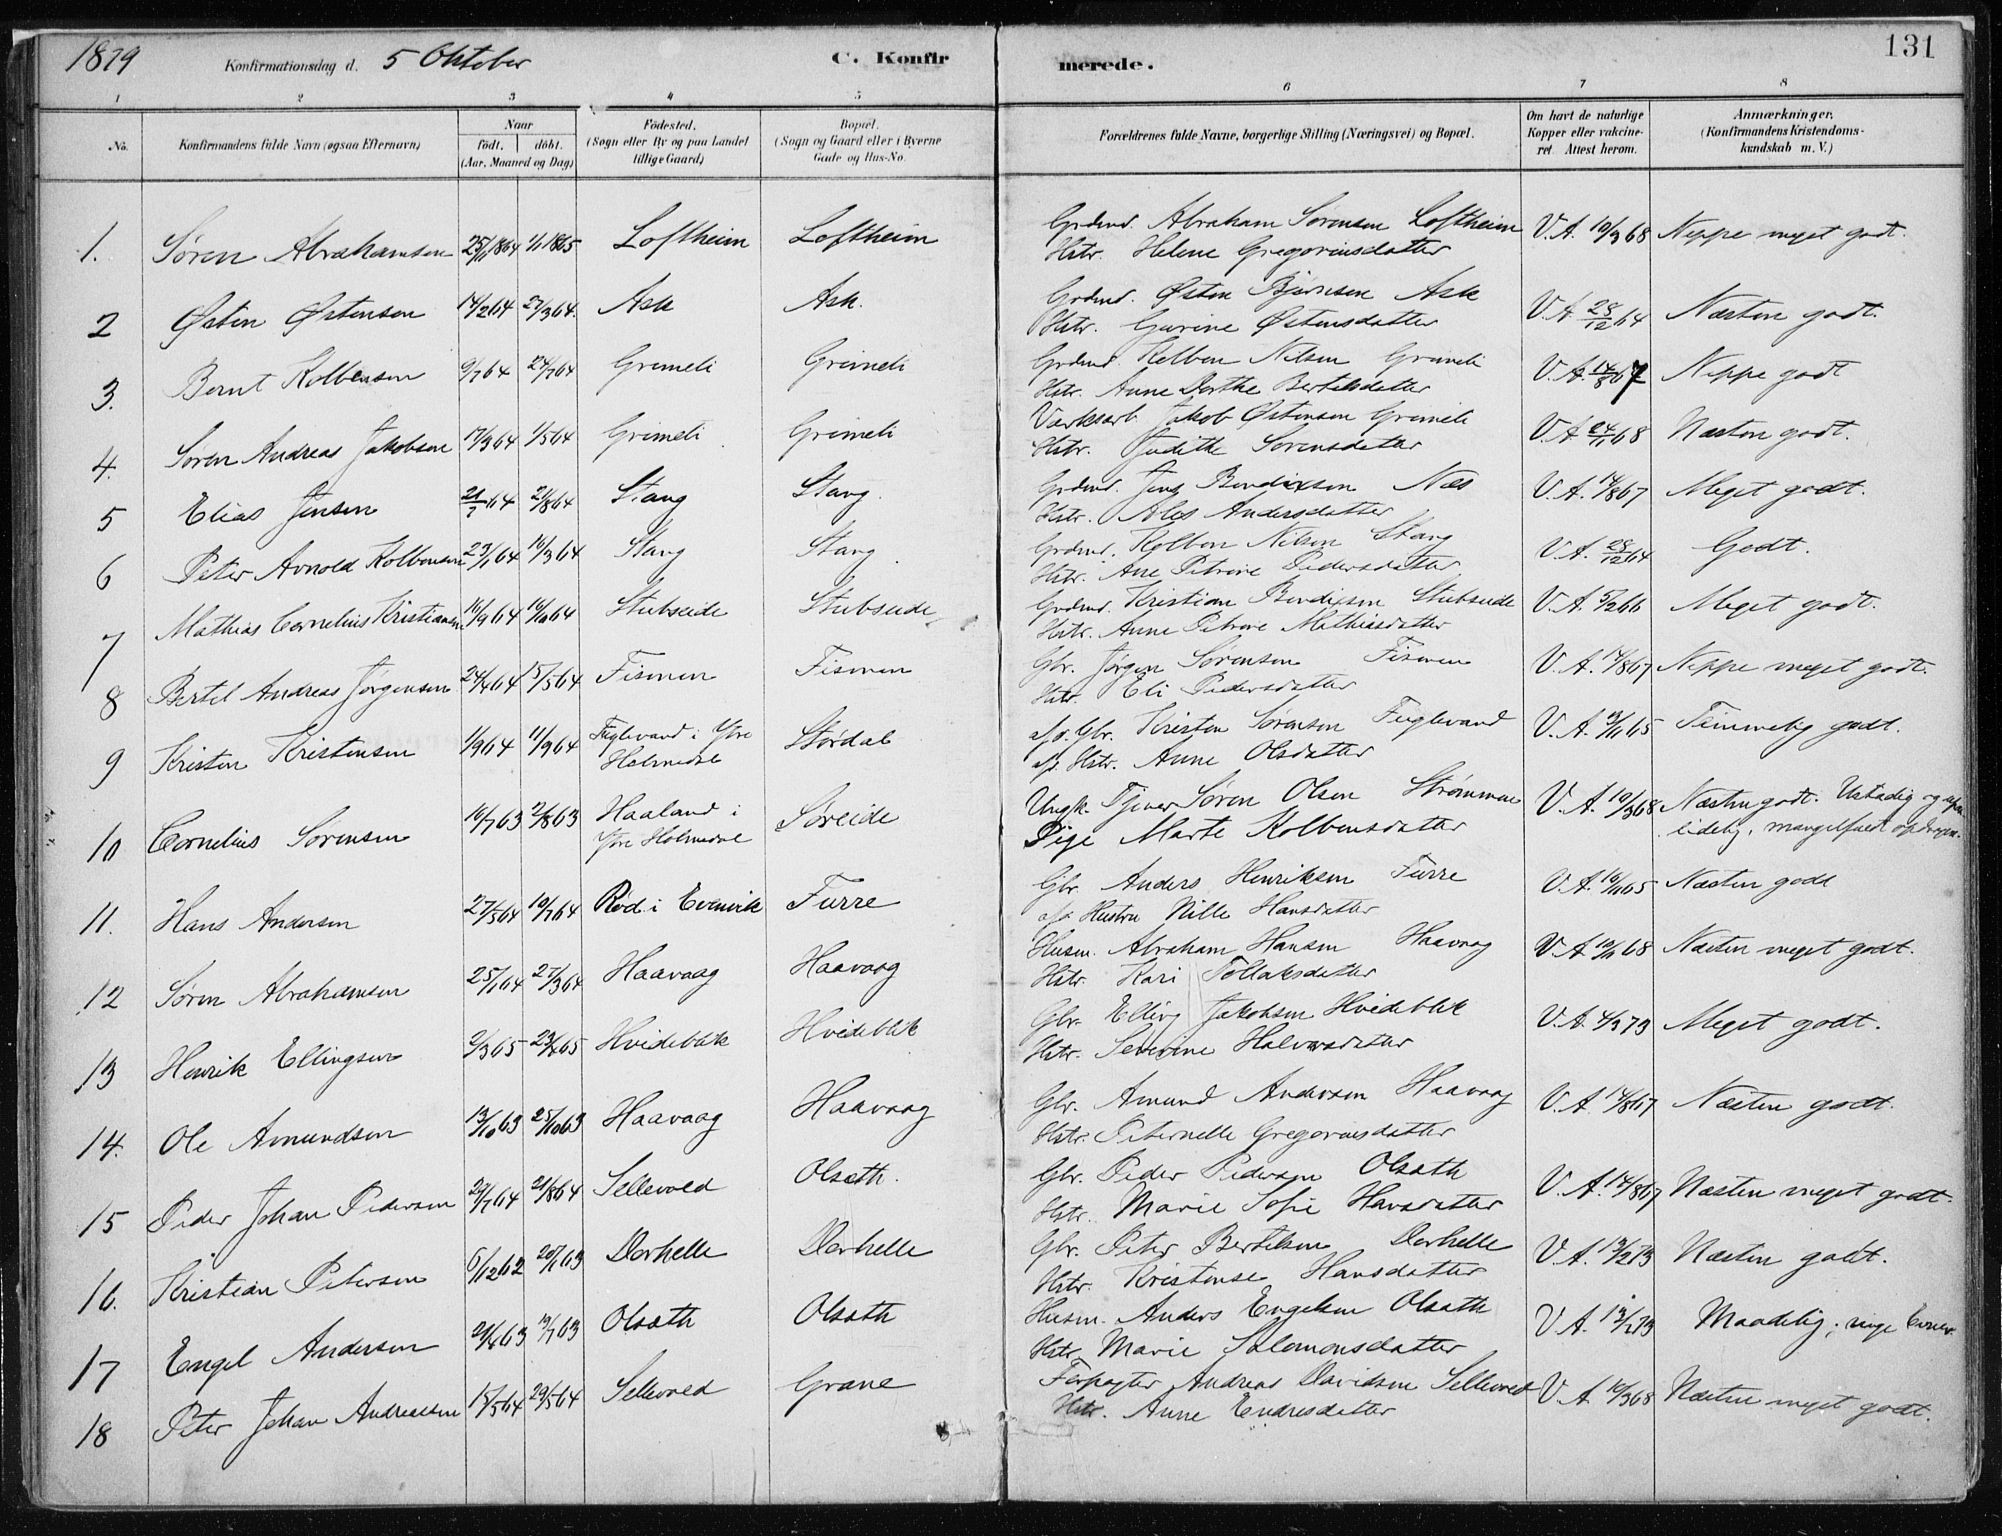 1879 Konfirmationsdag d. 5 Oktober C. Konfirmerede. 131
1 2 3 4 5 6 7 8
No. Konfirmandens fulde Navn (ogsaa Efternavn) Naar født. døbt. (Aar, Maaned og Dag) Fødested. (Sogn eller By og paa Landet tillige Gaard) Bopæl. (Sogn og Gaard eller i Byerne Gade og Hus-No. Forældrenes fulde Navne, borgerlige Stilling (Næringsvei) og Bopæl. Om havt de naturlige Kopper eller vakcineret Attest herom. Anmærkninger, (Konfirmandens Kristendomskundskab m. V.)
1. Søren Abrahamsen 25/11 1864 1/1 1865 Loftheim Loftheim Grdmd. Abraham Sørensen Loftheim V.A. 10/3 68 Neppe meget godt.
Hstr. Helene Gregoriusdatter
2 Østen Østensen 14/2 64 27/3 64. Ask Ask. Grdmd. Østen Bjørnsen Ask V.A. 28/12 64 Næsten godt.
Hstr. Gurine Østensdatter
3. Bernt Kolbensen 9/7 64 24/7 64 Grimeli Grimeli Grdmd. Kolben Nilsen Grimeli V.A. 14/8 67 Neppe godt
Hstr. Anne Dorthe Bertelsdatter
4. Søren Andreas Jakobsen 17/3 64 1/5 64 Grimeli Grimeli Værksarb. Jakob Østensen Grimeli V.A. 24/11 68 Næsten godt.
Hstr. Judithe Sørensdatter
5 Elias Jensen 21/7 64 21/8 64 Stang Stang. Grdmd. Jens Bendixsen Næs V.A. 14/8 67 Meget godt.
Hstr. Ales Andersdatter
6 Peter Arnold Kolbensen 23/1 64 16/3 64 Stang Stang. Grdmd. Kolben Nilsen Stang V.A. 28/12 64 Godt.
Hstr. Ane Petrine Pedersdatter
7 Mathias Cornelius Kristiansen 16/9 64 16/10 64 Stubseide Stubseide Grdmd. Kristian Bendixsen Stubseide V.A. 5/2 66 Meget godt.
Hstr. Anne Petrine Mathiasdatter
8 Bertel Andreas Jørgensen 24/4 64 15/5 64 Fismen Fismen Gbr. Jørgen Sørensen Fismen V.A. 14/8 67 Neppe meget godt.
Hstr. Eli Pedersdatter
9 Kristen Kristensen 1/9 64 11/9 64 Fuglevand i Ytre Holmedal Stordal afd. Gbr. Kristen Sørensen Fuglevand V.A. 13/11 65 Temmelig godt.
afd. Hstr. Anne Olsdatter
10 Cornelius Sørensen 16/7 63 2/8 63 Haaland i Ytre Holmedal Søreide Ungk. Tjener Søren Olsen Strømmen V.A. 10/3 68 Næsten godt. Ustadig og
Pige Marte Kolbensdatter
11. Hans Andersen 27/5 64 10/7 64 Rød i Evenvik Furre Gbr. Anders Henriksen Furre V.A. 16/11 65 Næsten godt
afd. Hustru Nille Hansdatter
12 Søren Abrahamsen 25/1 64 27/3 64 Haavaag Haavaag Husm. Abraham Hansen Haavaag V.A. 10/11 68 Næsten meget godt.
Hstr. Kari Tollaksdatter
13 Henrik Ellingsen 2/3 65 23/4 65 Hvideblik Hvideblik Gbr. Elling Jakobsen Hvideblik V.A. 4/3 73 Meget godt.
Hstr. Severine Halvorsdatter
14. Ole Amundsen 13/10 63 25/10 63 Haavaag Haavaag Gbr. Amund Andersen Haavaag V.A. 14/8 67 Næsten godt.
Hstr. Peternelle Gregoriusdatter
15 Peder Johan Pedersen 29/7 64 21/8 64 Sellevold Olsæth. Gbr. Peder Pedersen Olsæth V.A. 14/8 67 Næsten meget godt.
Hstr. Marie Sofie Hansdatter
16. Kristian Petersen 6/12 62 20/1 63 Dorhelle Dorhelle Gbr. Peter Bertelsen Dorhelle V.A. 13/2 73 Næsten godt.
Hstr. Kristense Hansdatter
17 Engel Andersen 21/6 63 19/7 63 Olsæth Olsæth Husm. Anders Engelsen Olsæth V.A. 13/2 73 Maadelig; ringe Evner.
Hstr. Marie Salomonsdatter
18 Peter Johan Andreassen 15/5 64 29/5 64 Sellevold Grane Forpagter Andreas Davidsen Sellevold V.A. 10/3 68 Næsten meget godt.
Hstr. Anne Endresdatter